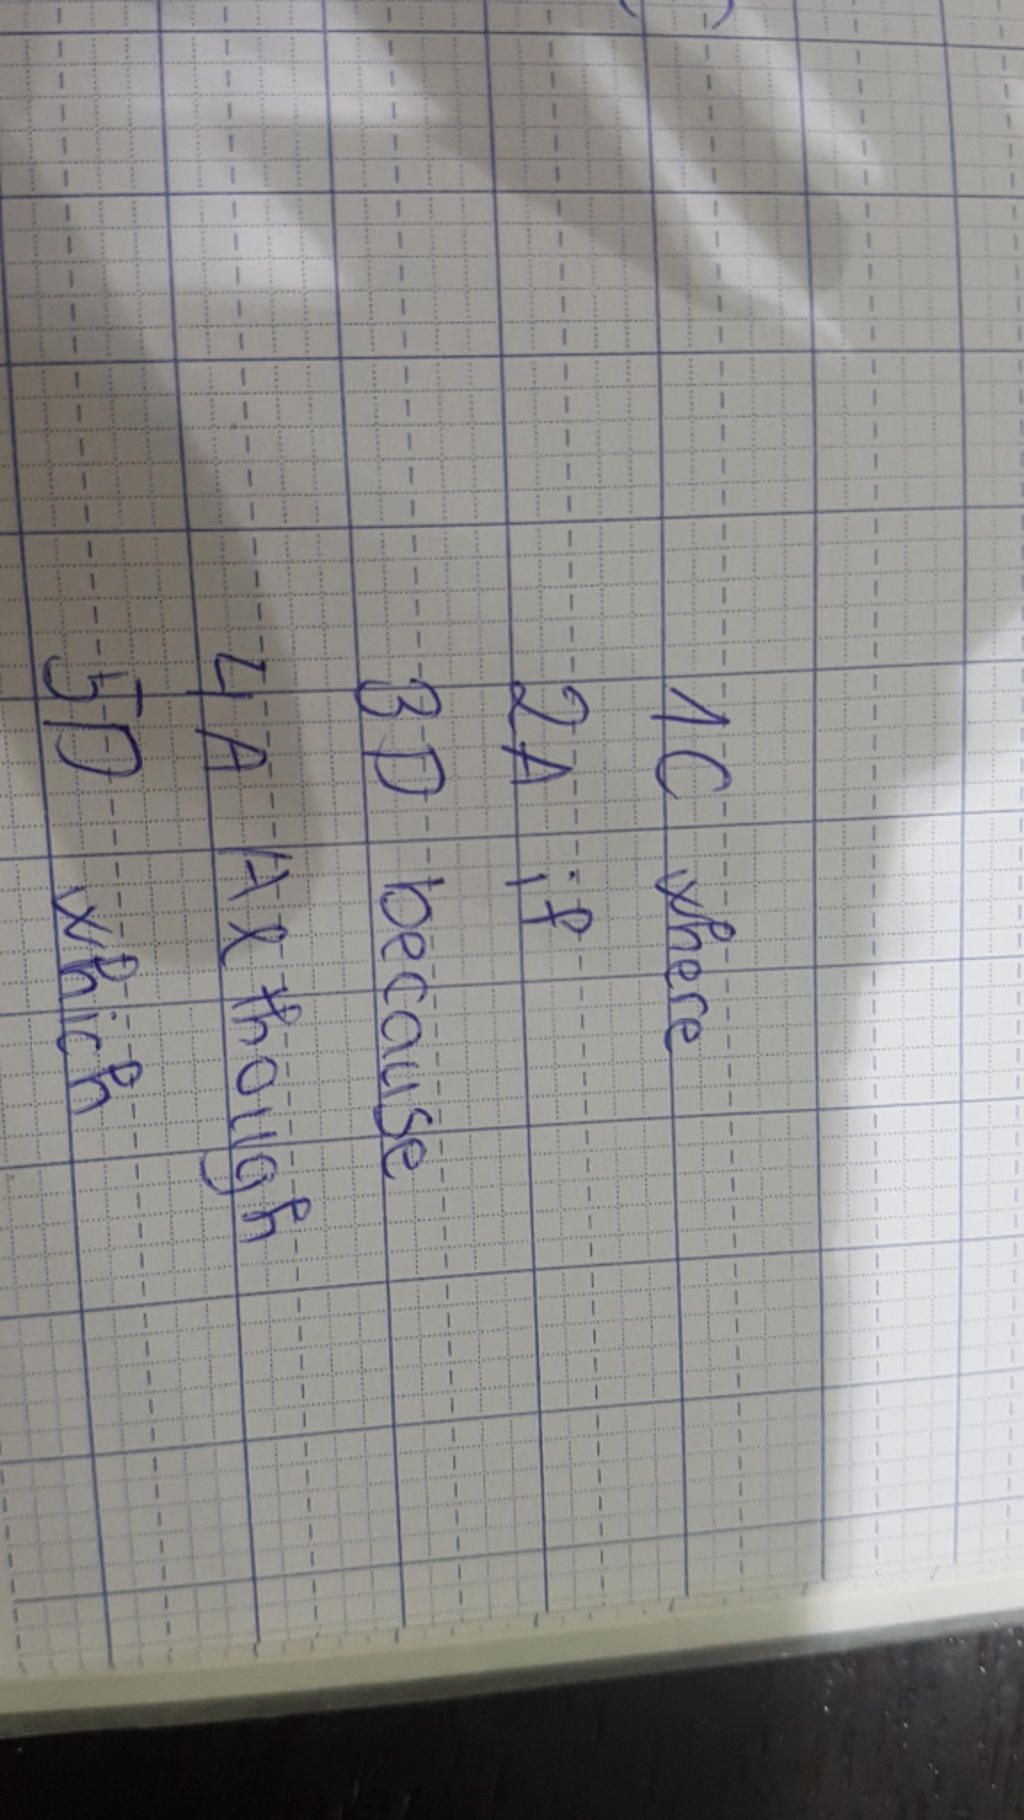 1C where
2A if
3D because
4A Although
5D which